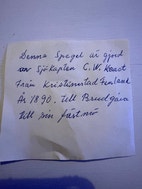 Denna Spegel är gjord
av Sjökapten C. W. Kaast
från Kristinestad Finland
År 1890. till Brudgåva
till sin fästmö